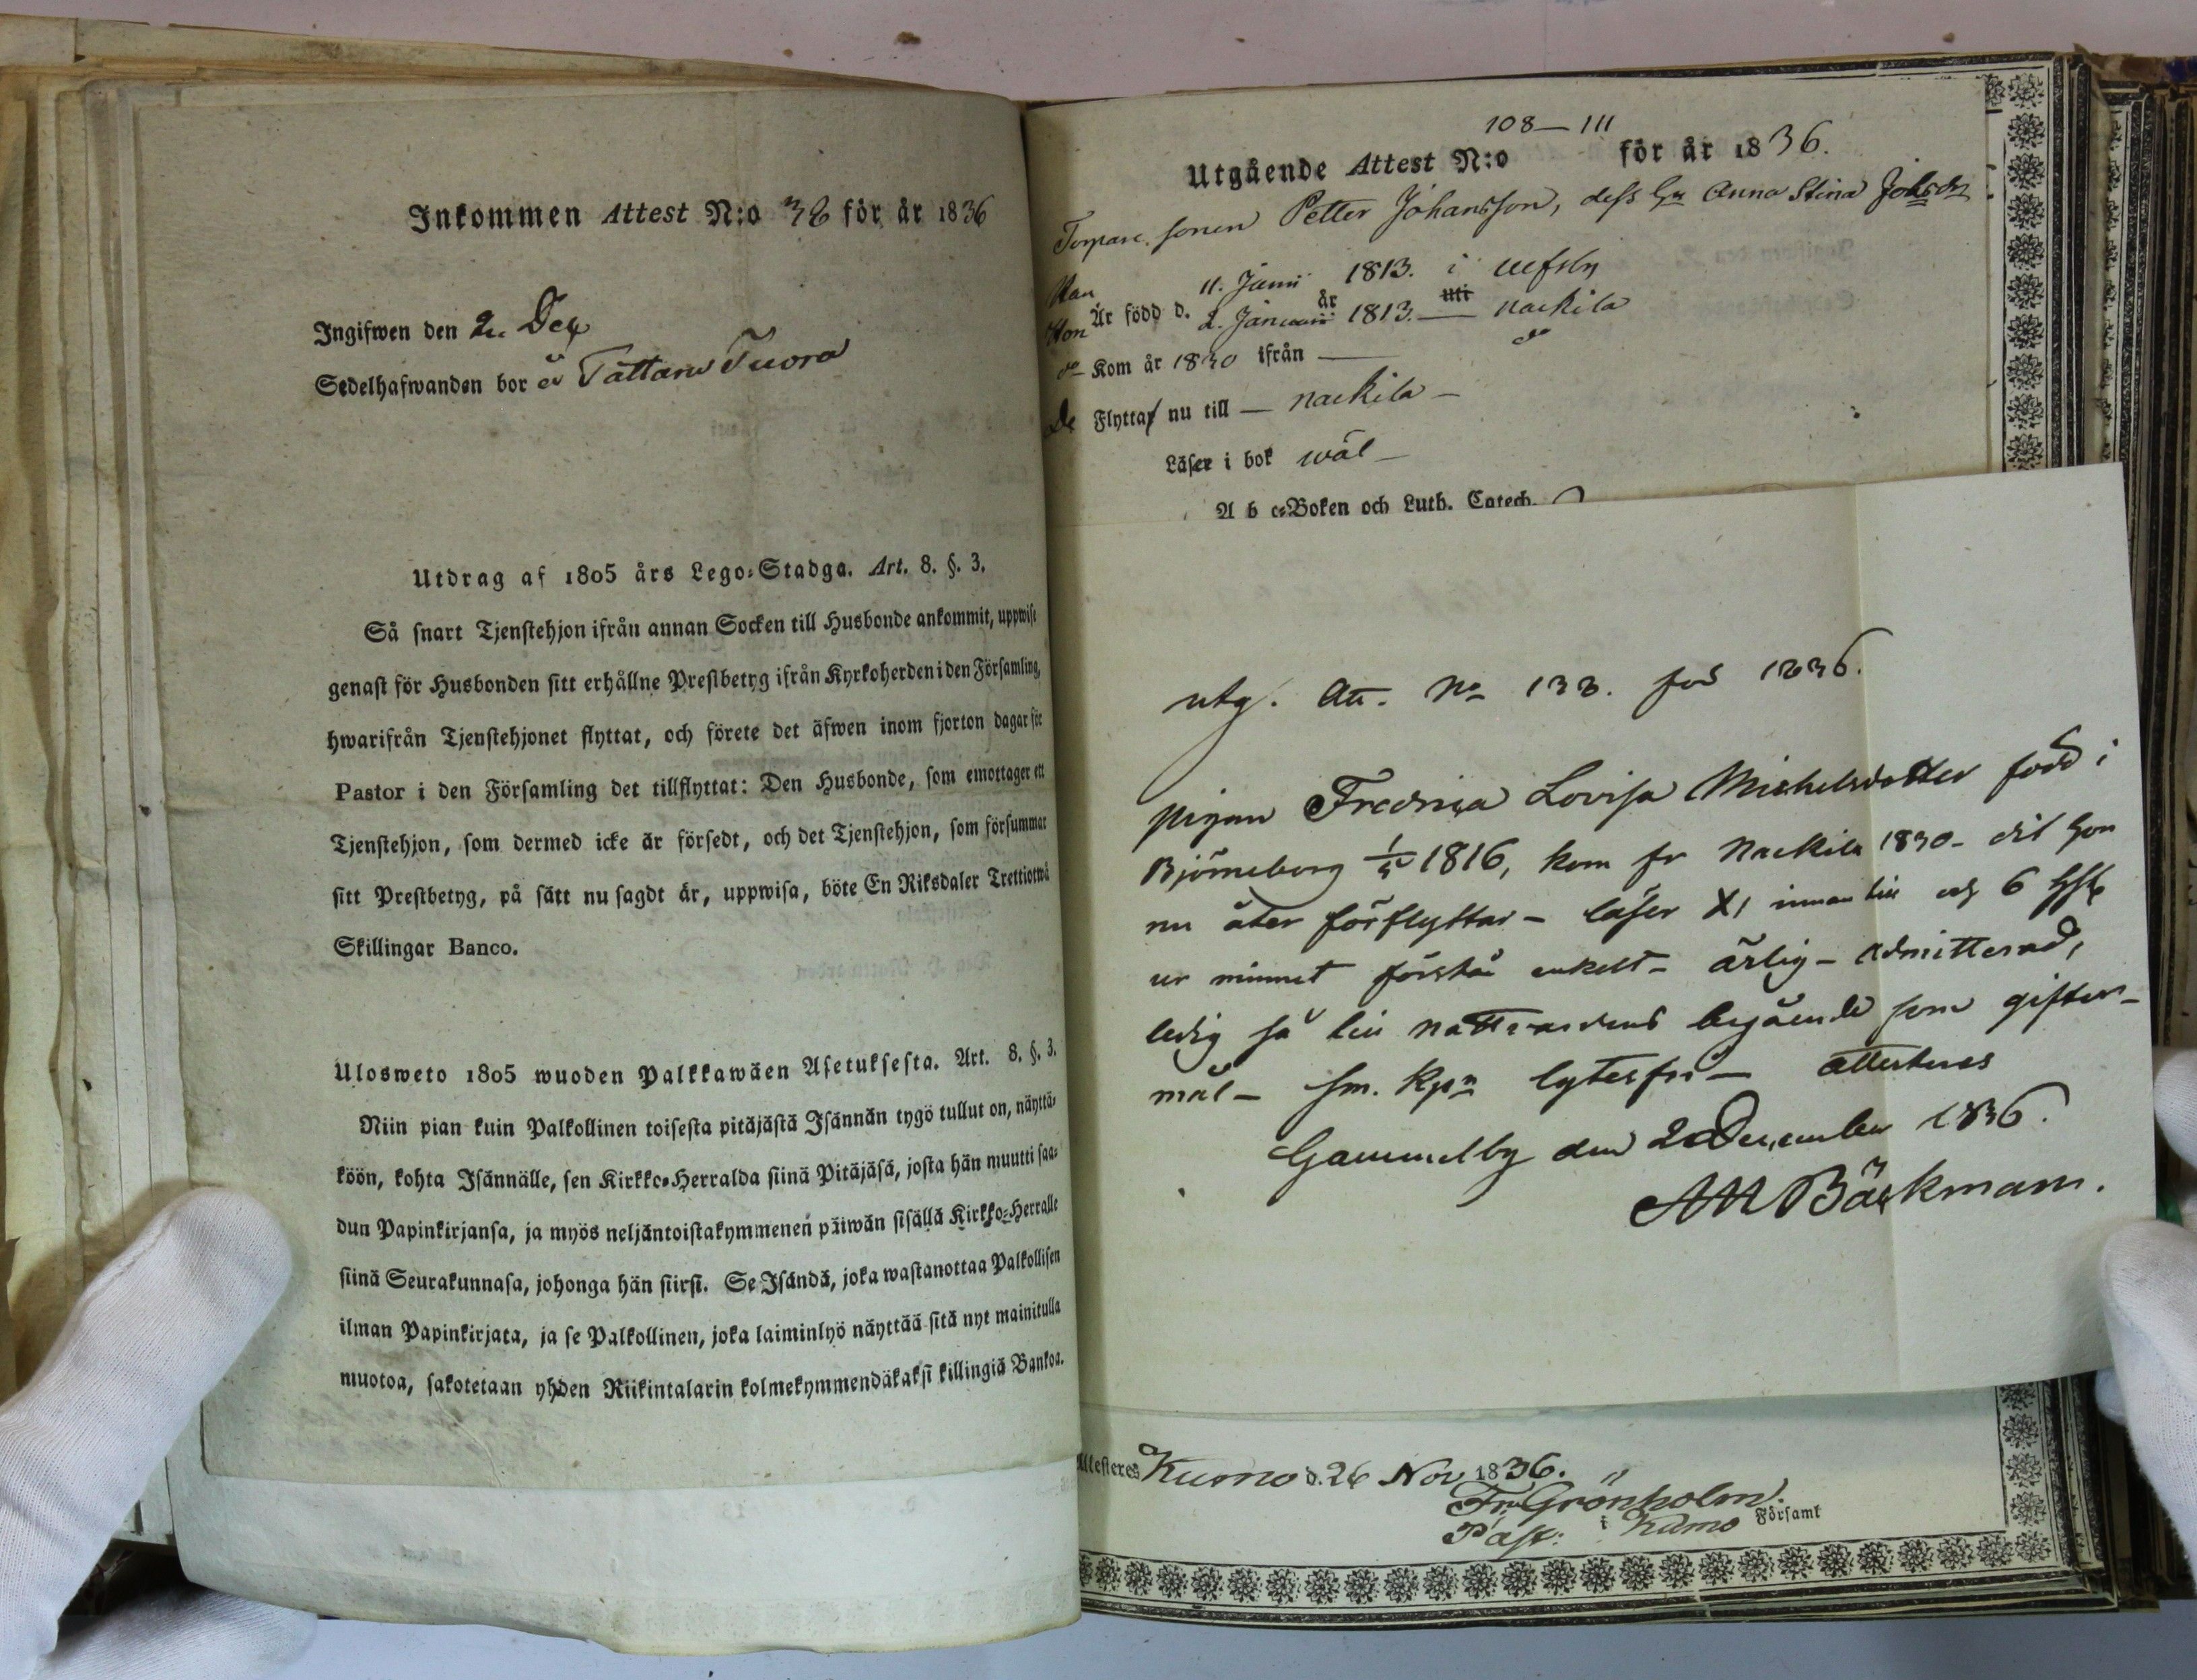 Inkommen Attest N:o 38 för år 1836
Ingifwen den 2 Dec
Sedelhafwanden bor å Tattara Tuora
Utdrag af 1805 års Lego-Stadga. Art. 8. §. 3.
Så snart Tjenstehjon ifrån annan Socken till Husbonde ankommit, uppwise
genast för Husbonden sitt erhållne Prestbetyg ifrån Kyrkoherden i den Församling,
hwarifrån Tjenstehjonet flyttat, och förete det äfwen inom fjorton dagar för
Pastor i den Församling det tillflyttat: Den Husbonde, som emottager ett
Tjenstehjon, som dermed icke är försedt, och det Tjenstehjon, som försummar
sitt Prestbetyg, på sätt nu sagdt är, uppwisa, böte En Riksdaler Trettiotwå
Skillingar Banco.
Ulosweto 1805 wuoden Palkkawäen Asetuksesta. Art. 8. §. 3.
Niin pian kuin Palkollinen toisesta pitäjästä Isännän tygö tullut on, näyttä-
köön, kohta Isännälle, sen Kirkko-Herralda siinä Pitäjäsä, josta hän muutti saa-
dun Papinkirjansa, ja myös neljäntoistakymmenen päiwän sisällä Kirkko-Herralle
siinä Seurakunnasa, johonga hän siirsi. Se Isändä, joka wastanottaa Palkollisen
ilman Papinkirjata, ja se Palkollinen, joka laiminlyö näyttää sitä nyt mainitulla
muotoa, sakotetaan yhden Riikintalarin kolmekymmendäkaksi killingiä Bankoa.
108-111
Utgående Attest N:o för år 1836.
Torpare sonen Petter Johansson, dess Hu Anna Stina Johsdr
Han 11. Junii 1813. i Ulfsby
Hon Är född d. 2. Januarii år 1813. uti Nackila
Kom år 1830 ifrån — do
De Flytta nu till — Nackila —
Läser i bok wäl —
A b c-Boken och Luth. Catech.
utg. Att. No 133. för 1836.
pigan Fredrica Lovisa Michelsdotter född i
Björneborg 1816, kom fr Nackila 1830 - dit hon
nu åter förflyttar - läser X innan till och 6
ur minnet förstå enkelt - ärlig - admitterad,
ledig så till nattvardens begående som gifter-
mål - sm. kpn lytesfri - attesteras
Gammelby den 2 December 1836.
AM Bäckman.
Attesteres Kumo d. 26 Nov 1836.
Fr. Grönholm.
Past: i Kumo Församl